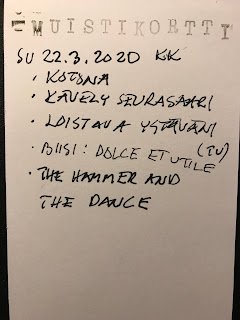 MUISTIKORTTI
SU 22.3.2020 KK
· KOTONA
· KÄVELY SEURASAARI
· LOISTAVA YSTÄVÄNI
(TV)
· BIISI: DOLCE ET UTILE
· THE HAMMER AND
THE DANCE